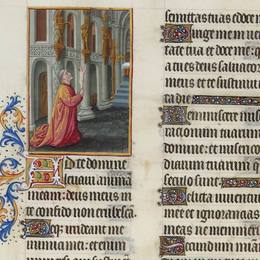 Ad te domine
leuaui animam
meam: deus meus in
te confido non erubesca
Neqz irrideant me
inimici mei: et enim
semitas tuas edoce m
Dirige me in ueri
tate tua et doce me: q
tu es deus saluator
meus et te sustinui
ta die
Reminiscere mise
rationum tuarum
domine: et misericor
diarum tuarum q
seculo sunt
Delicta iuuentuti
mee et ignorantias
meas ne memineri
Secundum